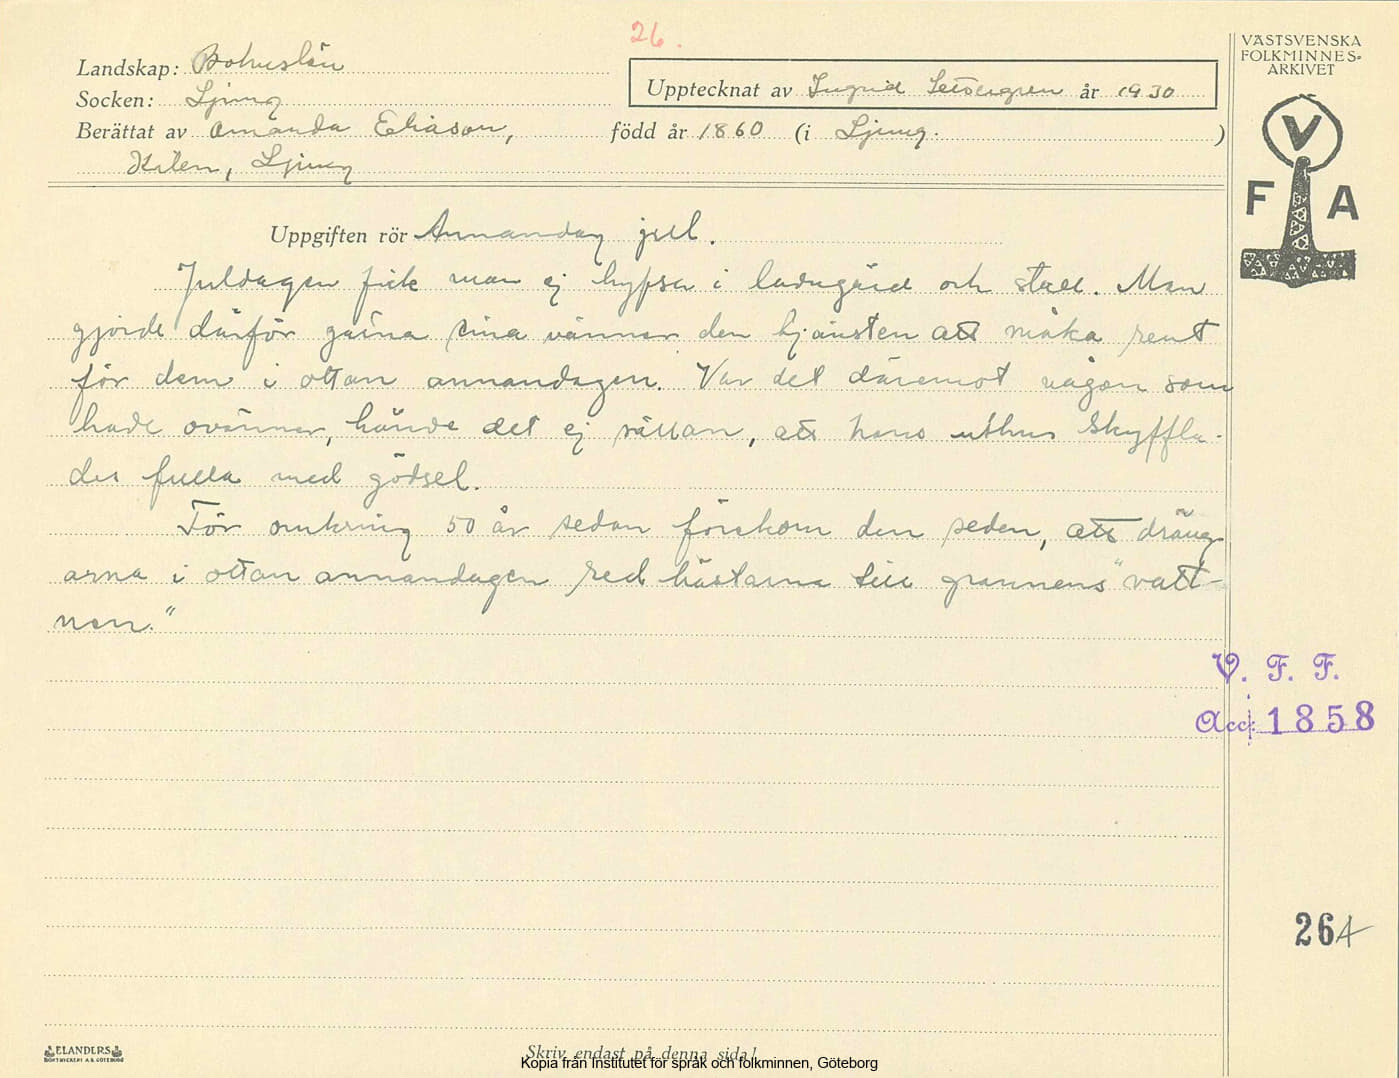 26.
VÄSTSVENSKA
FOLKMINNES-
ARKIVET
V
F A
Landskap: Bohuslän
Socken: Ljung
Upptecknat av Ingrid år 1930
Berättat av Amanda Eliason, född år 1860 (i Ljung. )
Kilen, Ljung
Uppgiften rör Annandag jul.
Juldagen fick man ej hyfsa i ladugård och stall. Man
gjorde därför gärna sina vänner den hjänsten att måka rent
för dem i ottan annandagen. Var det däremot någon som
hade ovänner, hände det ej sällan, att hans uthus skyffla-
des fulla med gödsel.
För omkring 50 år sedan förekom den seden, att dräng
arna i ottan annandagen red hästarna till grannens "vatt-
nen."
V. F. F.
Acc: 1858
26 A
ELANDERS
BOKTRYCKERI A.B. GÖTEBORG
Skriv endast på denna sida!
Kopia från Institutet för språk och folkminnen, Göteborg